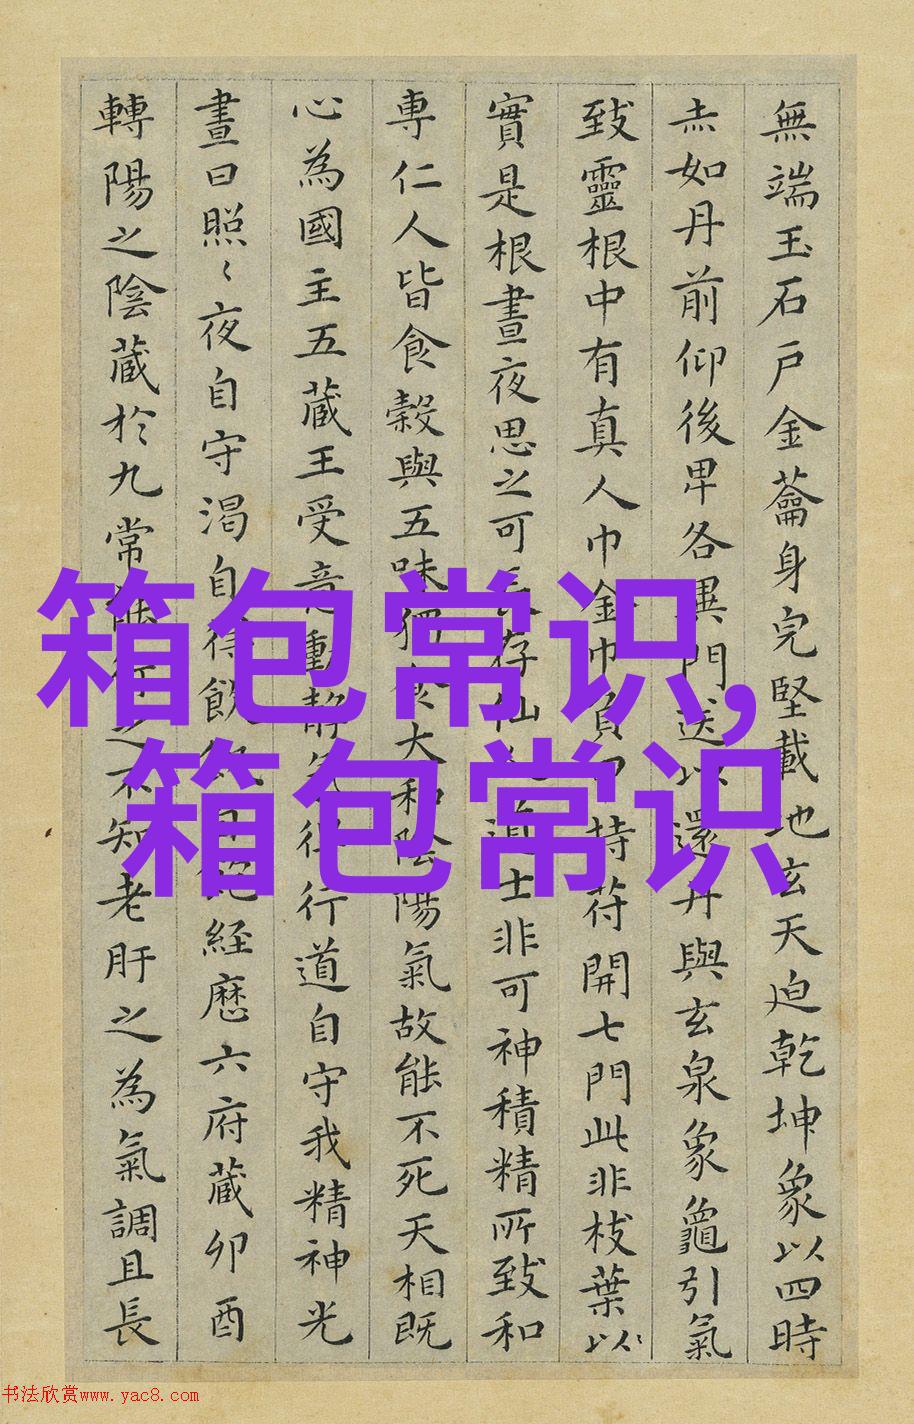 無端玉石戶金蘥身完堅載地玄天迫乾坤象以四時
赤如丹前仰後卑各異門送以還丹與玄泉象龜引氣
致靈根中有真人巾金巾負甲持符開七門此非枝葉以
實是根晝夜思之可長存仙人道士非可神積精所致和
專仁人皆食穀與五味獨食大和陰陽氣故能不死天相既
心為國主五藏王受意動靜氣得行道自守我精神光
晝日照〻夜自守渴自得飲飢自飽經歷六府藏卯酉
轉陽之陰藏於九常能行之不知老肝之為氣調且長
箱包常识,
箱包常识
书法欣赏www.yac8.com